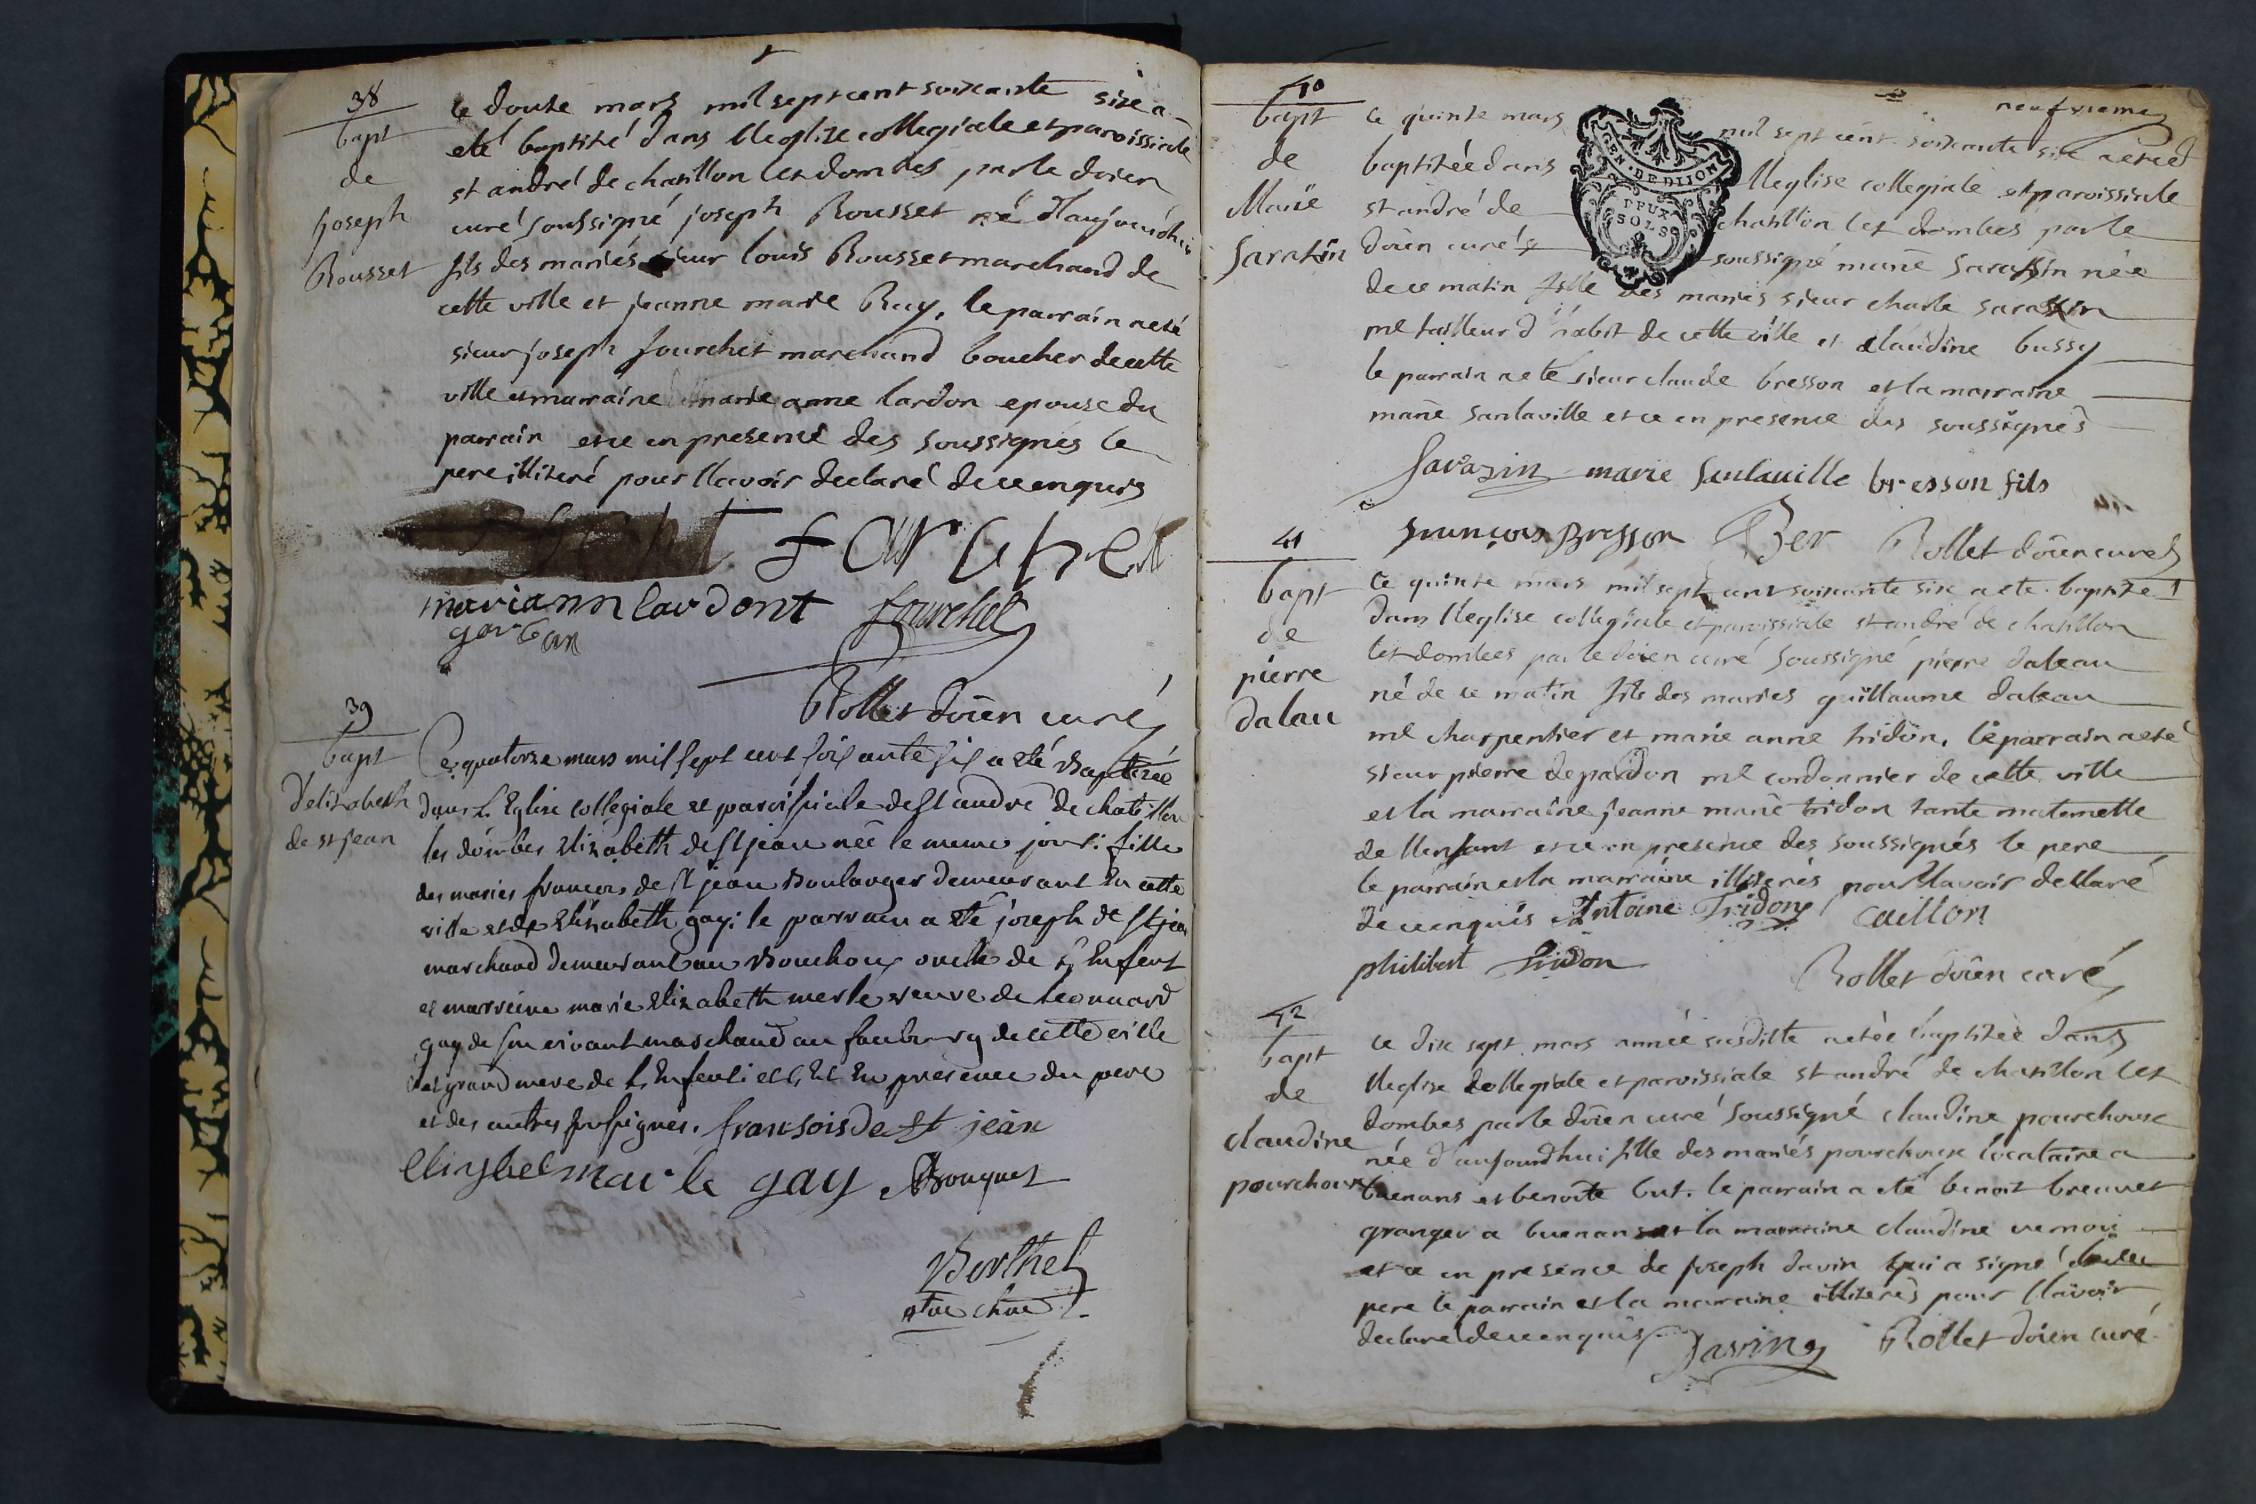 38
bapt
de
joseph
Rousset
ce douze mars mil sept cent soixante six a
eté baptizé dans lleglize collegiale et paroissiale
st andré de chatillon les dombes par le doien
curé soussigné joseph Rousset né d'aujourd'hui
fils des mariés sieur louis Rousset marchand de
cette ville et jeanne marie Ruy, le parrain a eté
sieur joseph fourchet marchand boucher de cette
ville et marraine marie anne lardon epouse du
parrain et ce en presence des soussignés le
pere illiteré pour llavoir declaré de ce enquis
fourchet
mariann lardont fourchet
Rollet doien curé
39
bapt
d'elizabeth
de st jean
Ce quatorze mars mil sept cent soixante six a été Baptizée
dans L'Eglise collegiale et paroissiale de St andré de chatillon
les dombes Elizabeth de St jean née le meme jour: fille
des mariés françois de St jean Boulanger demeurant En cette
ville et de Elizabeth gay: le parrain a été joseph de St jean
marchand demeurant au Bouchoux oncle de L'Enfent
et marreine marie Elizabeth merle veuve de Leonnard
gay de son vivant marchand au faubourg de cette ville
et grand mere de L'Enfent: et ce En presence du pere
et des autres soussignés. fransois de st jean
Elisybet mairle gay Bouquet
Berthet
neufvieme
40
bapt
de
Marie
Sarasin
ce quinze mars mil sept cent soixante six a eté
baptizée dans lleglise collegiale et paroissiale
st andré de chatillon les dombes par le
doien curé soussigné marie Sarasin née
de ce matin fille des mariés sieur charle sarasin
me tailleur d'habit de cette ville et claudine bussy
le parrain a eté sieur claude bresson et la marraine
marie sanlaville et ce en presence des soussignés
Sarazin marie Sanlauille bresson fils
françois Bresson Ber Rollet doien curé
41
bapt
de
pierre
dalau
Ce quinze mars mil sept cent soixante six a eté baptizé
dans lleglise collegiale et paroissiale st andré de chatillon
les dombes par le doien curé soussigné pierre daleau
né de ce matin fils des mariés guillaume daleau
me charpentier et marie anne tridon, le parrain a eté
sieur pierre depardon me cordonnier de cette ville
et la marraine jeanne marie tridon tante maternelle
de llenfant et ce en presence des soussignés le pere
le parrain et la marraine illiterés pour llavoir declaré
de ce enquis Antoine Tridon Caillon
philibert tridon Rollet doien curé
42
bapt
de
claudine
pourchoux
ce dix sept mars année susditte a eté baptizée dans
lleglise collegiale et paroissiale st andré de chatillon les
dombes par le doien curé soussigné claudine pourchoux
née d'aujourdhui fille des mariés pourchoux locataire a
buenans et benoite but. le parrain a eté benoit breuvet
granger a buenans et la marraine claudine vernoux
et ce en presence de joseph davin qui a signé le
pere le parrain et la marraine illiterés pour llavoir
declaré de ce enquis Rollet doien curé
GEN. DE DIJON
DEUX
SOLS